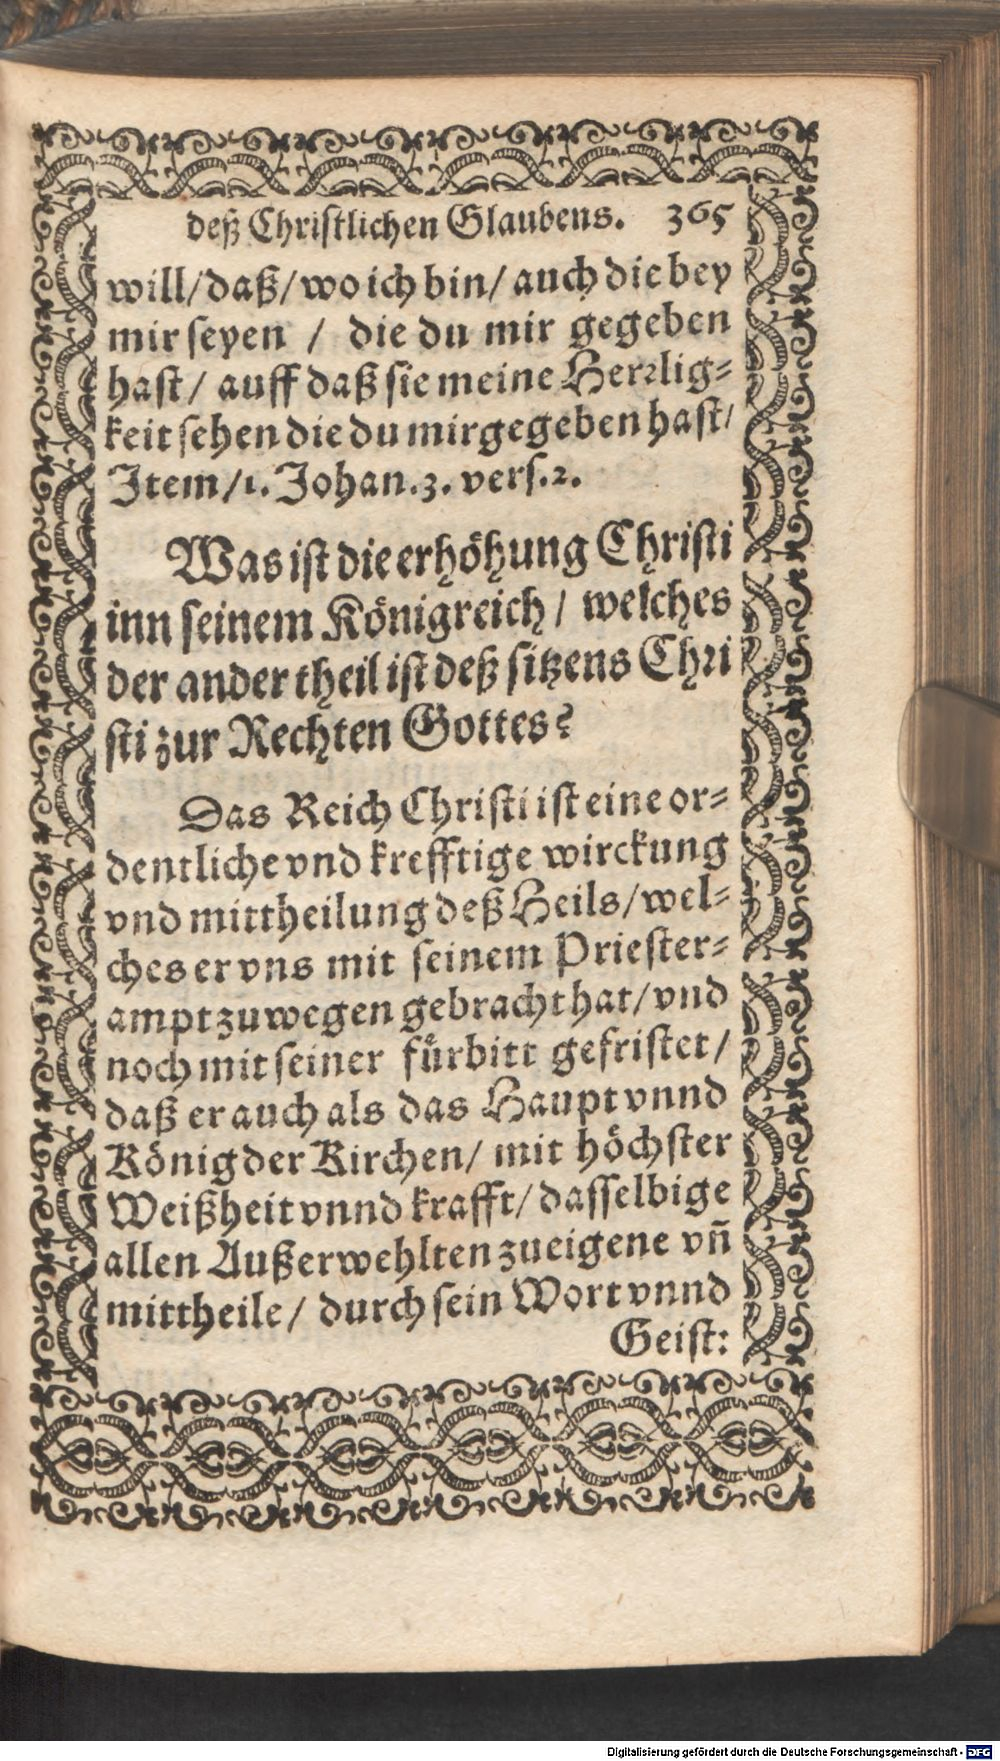 deß Christlichen Glaubens. 365
will/ daß/ wo ich bin/ auch die bey
mir seyen / die du mir gegeben
hast/ auff daß sie meine Herrlig-
keit sehen die du mir gegeben hast/
Item/ 1. Johan. 3. vers. 2.
Was ist die erhöhung Christi
inn seinem Königreich/ welches
der ander theil ist deß sitzens Chri
sti zur Rechten Gottes?
Das Reich Christi ist eine or-
dentliche vnd krefftige wirckung
vnd mittheilung deß Heils/ wel-
ches er vns mit seinem Priester-
ampt zuwegen gebracht hat/ vnd
noch mit seiner fürbitt gefristet/
daß er auch als das Haupt vnnd
König der Kirchen/ mit höchster
Weißheit vnnd krafft/ dasselbige
allen Außerwehlten zueigene vñ
mittheile/ durch sein Wort vnnd
Geist:
Digitalisierung gefördert durch die Deutsche Forschungsgemeinschaft - DFG